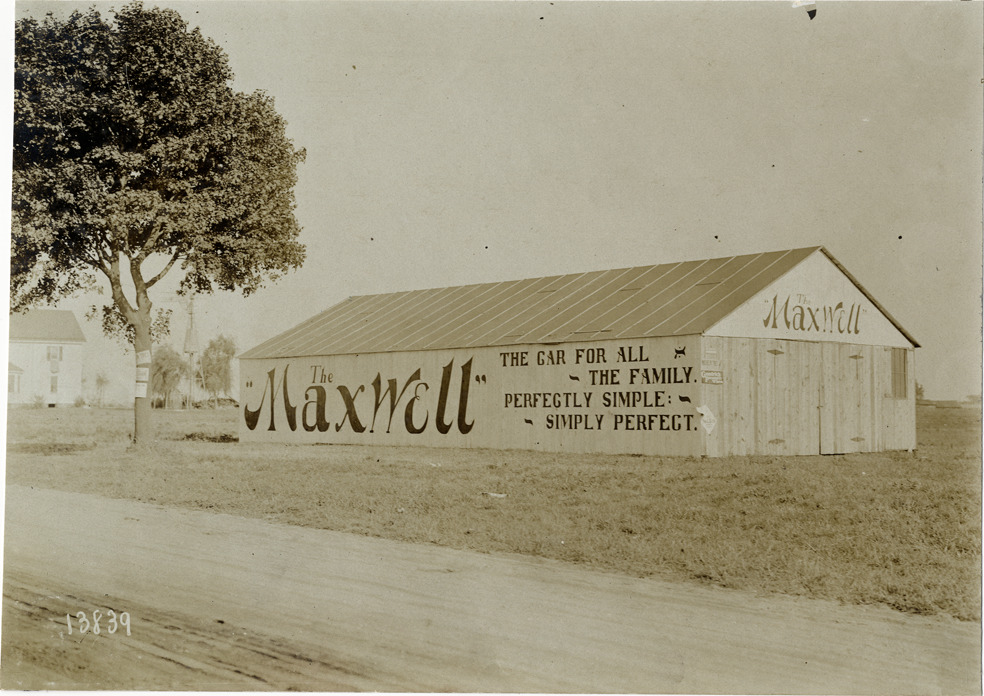 "The Maxwell"
THE CAR FOR ALL
THE FAMILY.
PERFECTLY SIMPLE:
SIMPLY PERFECT.
"The Maxwell"
13839